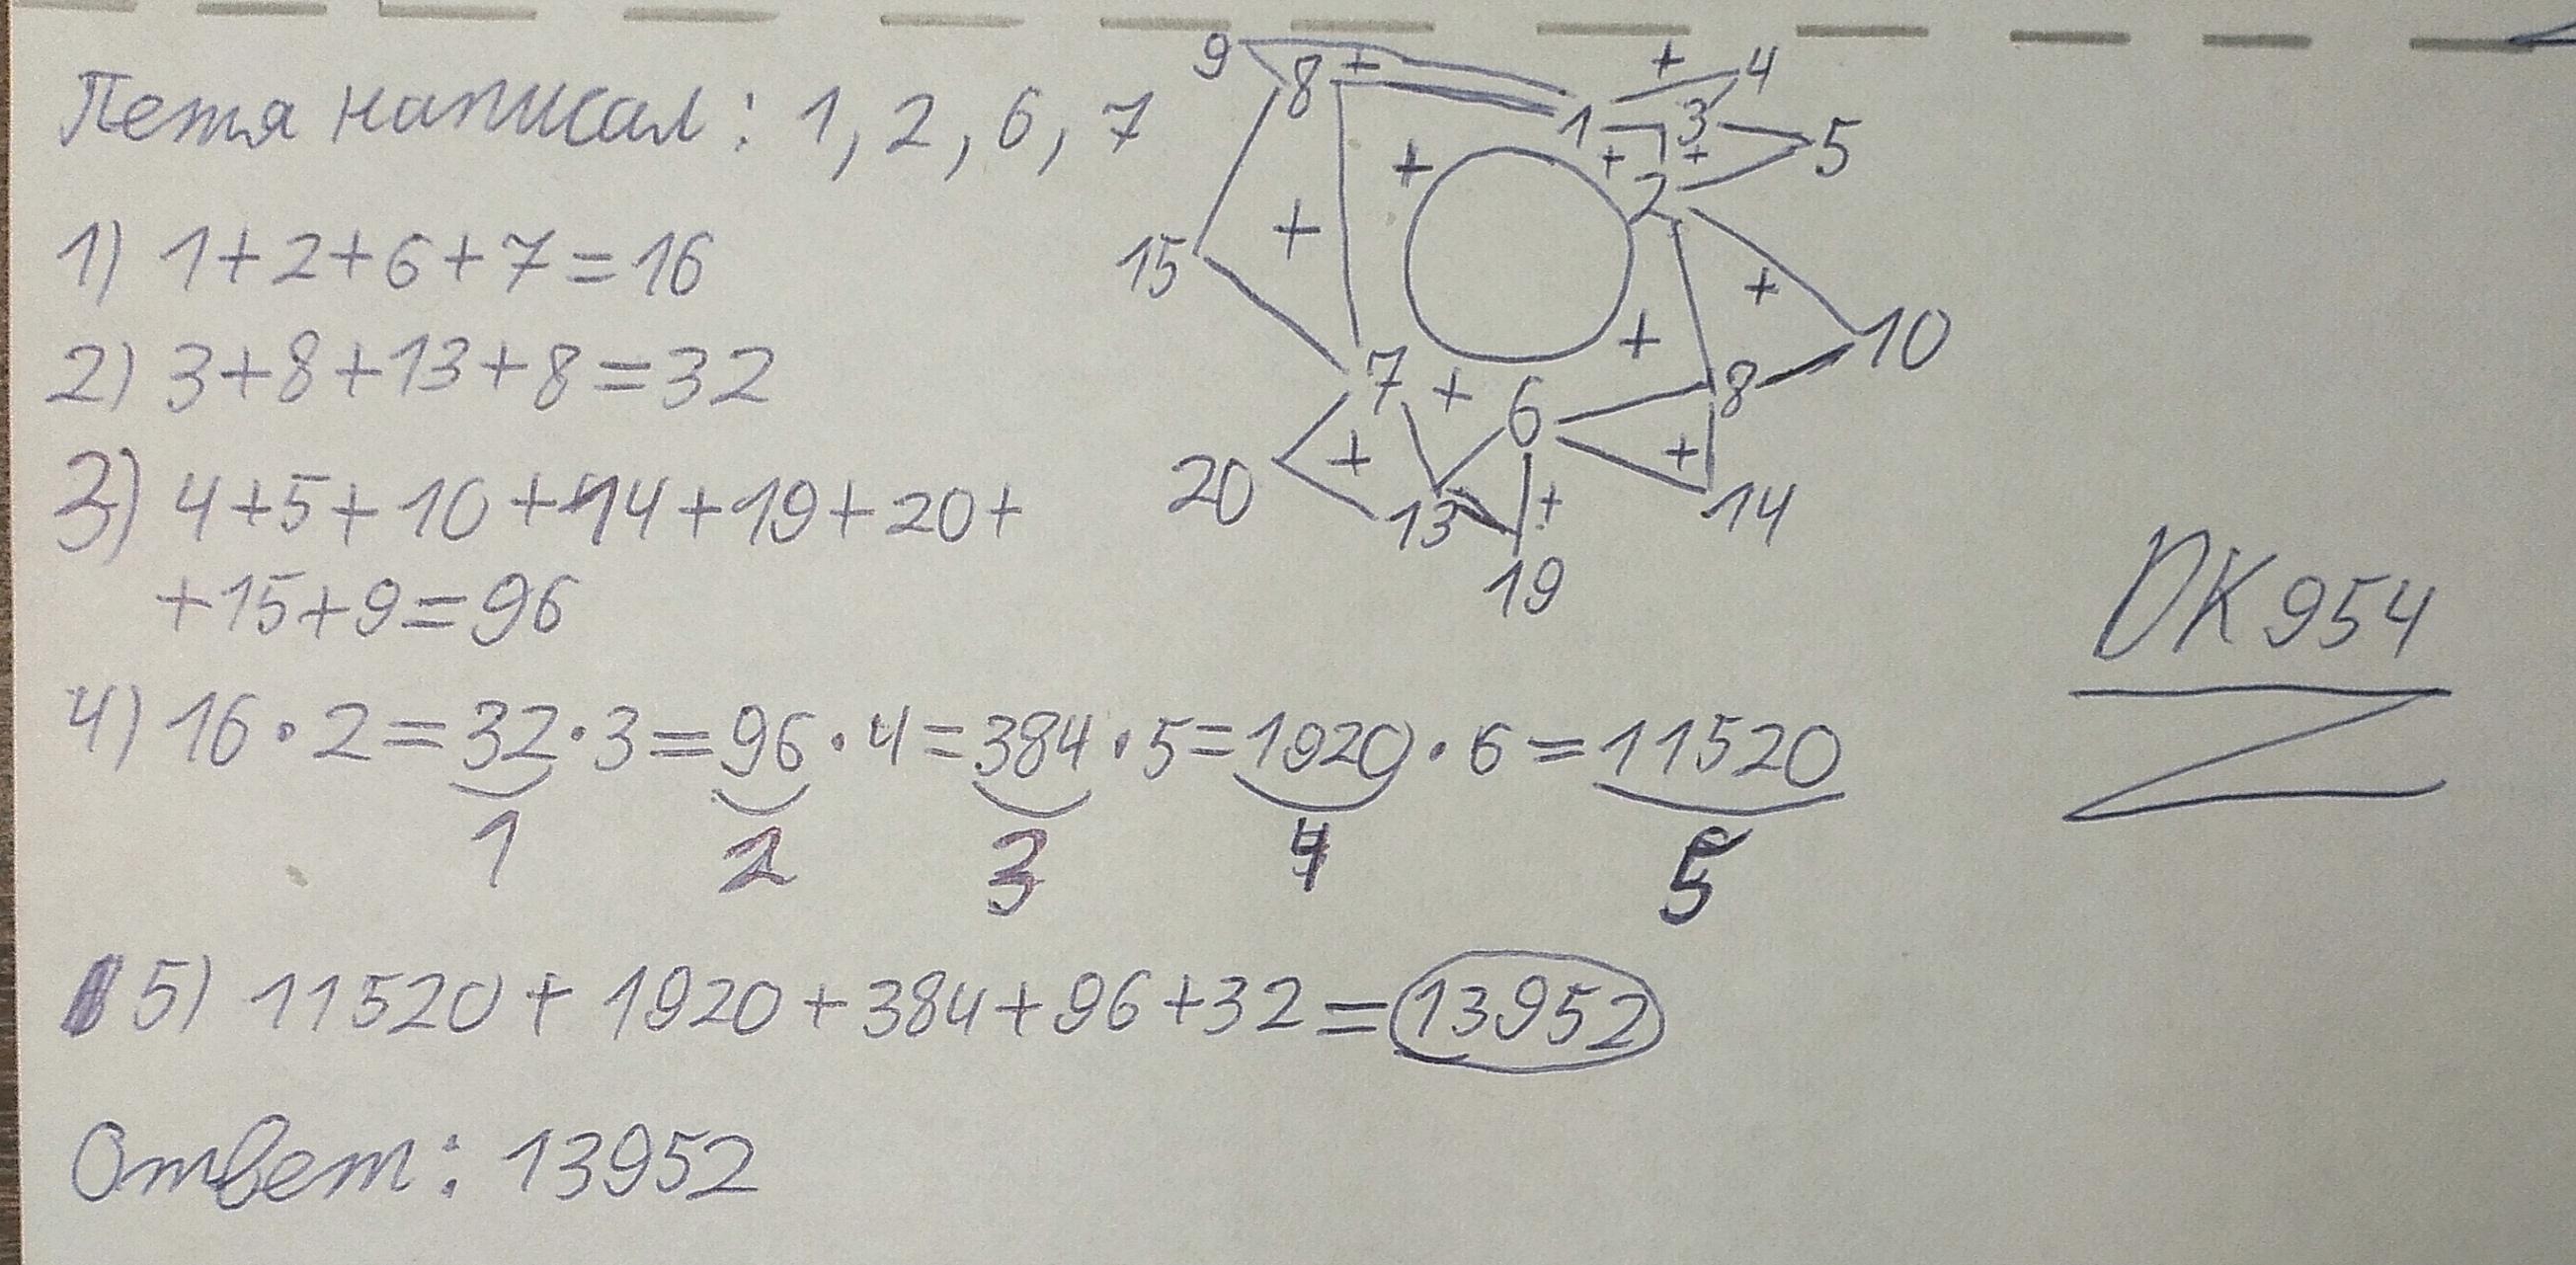 Петя написал: 1, 2, 6, 7
1) 1+2+6+7=16
2) 3+8+13+8=32
3) 4+5+10+14+19+20+
+15+9=96
4) 16·2=32·3=96·4=384·5=1920·6=11520
1 2 3 4 5
5) 11520+1920+384+96+32=13952
Ответ: 13952
9 8 + 1 + 4
3 5
+ + +
2
15 + +
+ 10
7 + 6 8
20 + +
13 + 14
19
DK954